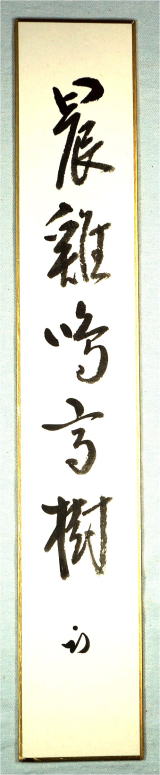 晨雞鳴高樹